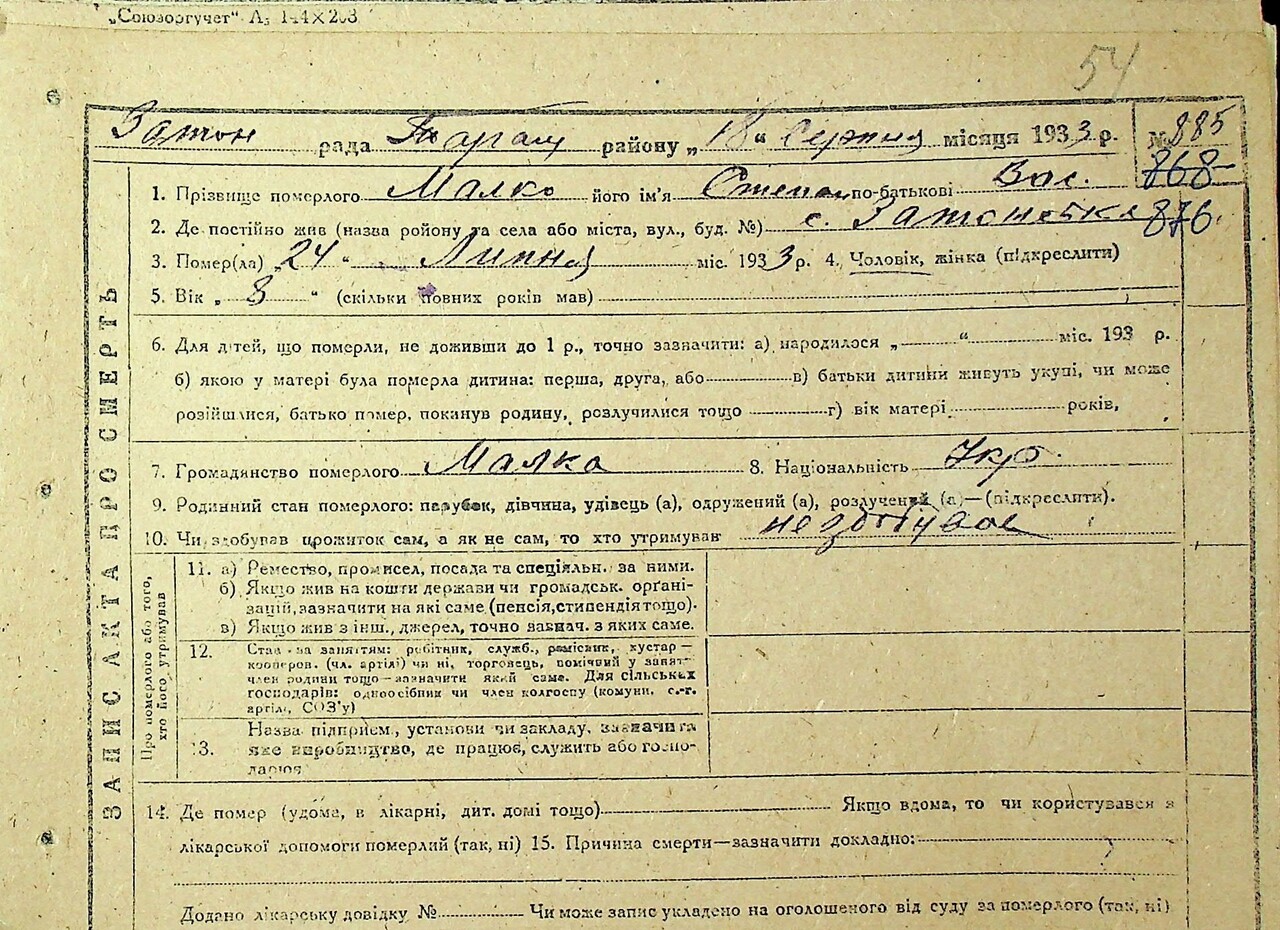 „Союзоргучет“ 144×203
54
Затон рада Таращ району „18“ Серпня місяця 1933 р. № 885
1. Прізвище померлого Малко його ім'я Степан по-батькові Вас. 868
2. Де постійно жив (назваройону та села або міста, вул., буд. №) с. 876.
3. Помер(ла) „24“ Липня міс. 1933 р. 4. Чоловік, жінка (підкреслити)
5. Вік „8“ (скільки повних років мав)
6. Для дітей, що померли, не доживши до 1 р., точно зазначити: а) народилося „ “ міс. 193 р.
б) якою у матері була померла дитина: перша, друга, або в) батьки дитини живуть укупі, чи може
розійшлися, батько помер, покинув родину, розлучилися тощо г) вік матері років,
7. Громадянство померлого Малка 8. Національність Укр.
9. Родинний стан померлого: парубок, дівчина, удівець (а), одружений (а), розлучений (а)—(підкреслити).
10. Чи здобував прожиток сам, а як не сам, то хто утримував не здобував
ЗАПИС АКТА ПРО СМЕРТЬ
Про померлого або того,
хто його утримував
11. а) Ремество, промисел, посада та спеціяльн. за ними.
б) Якщо жив на кошти держави чи громадськ. орґані-
зацій, зазначити на які саме (пенсія, стипендія тощо).
в) Якщо жив з інш., джерел, точно зазнач. з яких саме.
12. Стан за заняттям: робітник, служб., ремісник, кустар—
кооперов. (чл. артілі) чи ні, торговець, помічний у занят
член родини тощо—зазначити який саме. Для сільських
господарів: одноосібник чи член колгоспу (комуни, с.-г.
артілі, СОЗ'у)
Назва підприєм., установи чи закладу, зазначити
13. яке виробництво, де працює, служить або госпо-
дарює
14. Де помер (удома, в лікарні, дит. домі тощо) Якщо вдома, то чи користувався з
лікарської допомоги померлий (так, ні) 15. Причина смерти—зазначити докладно:
Додано лікарську довідку № Чи може запис укладено на оголошеного від суду за померлого (так, ні)